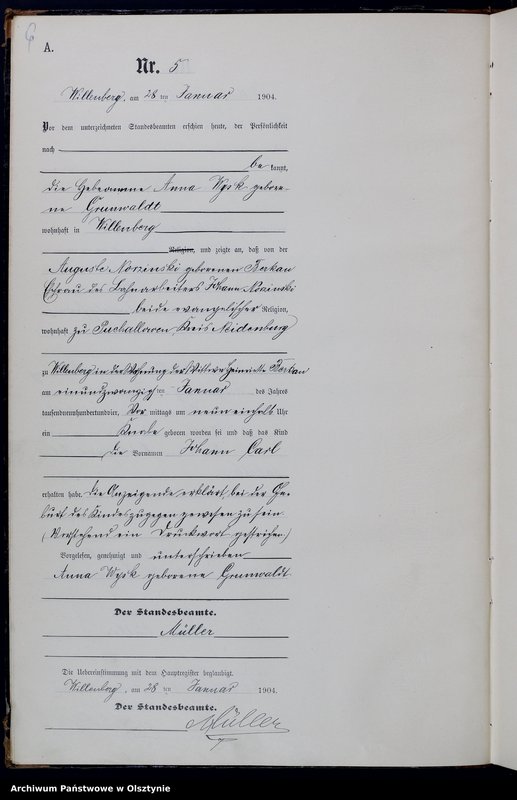 A.
Nr. 5
Willenberg, am 28 ten Januar 1904.
Vor dem unterzeichneten Standesbeamten erschien heute, der Persönlichkeit
nach
be kannt,
die Hebeamme Anna Wysk gebore-
ne Grunwaldt
wohnhaft in Willenberg
Religion, und zeigte an, daß von der
Auguste Norzinski geborenen Berkau
Ehefrau des Bahnarbeiters Johann Norzinski
beide evangelischer Religion,
wohnhaft zu Puchallowen Kreis Neidenburg
zu Willenberg in der Wohnung der Wittwe Henriette Berkau
am einundzwanzig ten Januar des Jahres
tausendneunhundertundvier, Vor mittags um neun einhalb Uhr
ein Knabe geboren worden sei und daß das Kind
die Vornamen Johann Carl
erhalten habe. Die Anzeigende erklärt, bei der Ge-
burt des Kindes zugegen gewesen zu sein.
(Vorstehend ein Druckwort gestrichen)
Vorgelesen, genehmigt und unterschrieben
Anna Wysk geborene Grunwaldt
Der Standesbeamte.
Müller
Die Uebereinstimmung mit dem Hauptregister beglaubigt.
Willenberg, am 28 ten Januar 1904.
Der Standesbeamte.
Müller
Archiwum Państwowe w Olsztynie